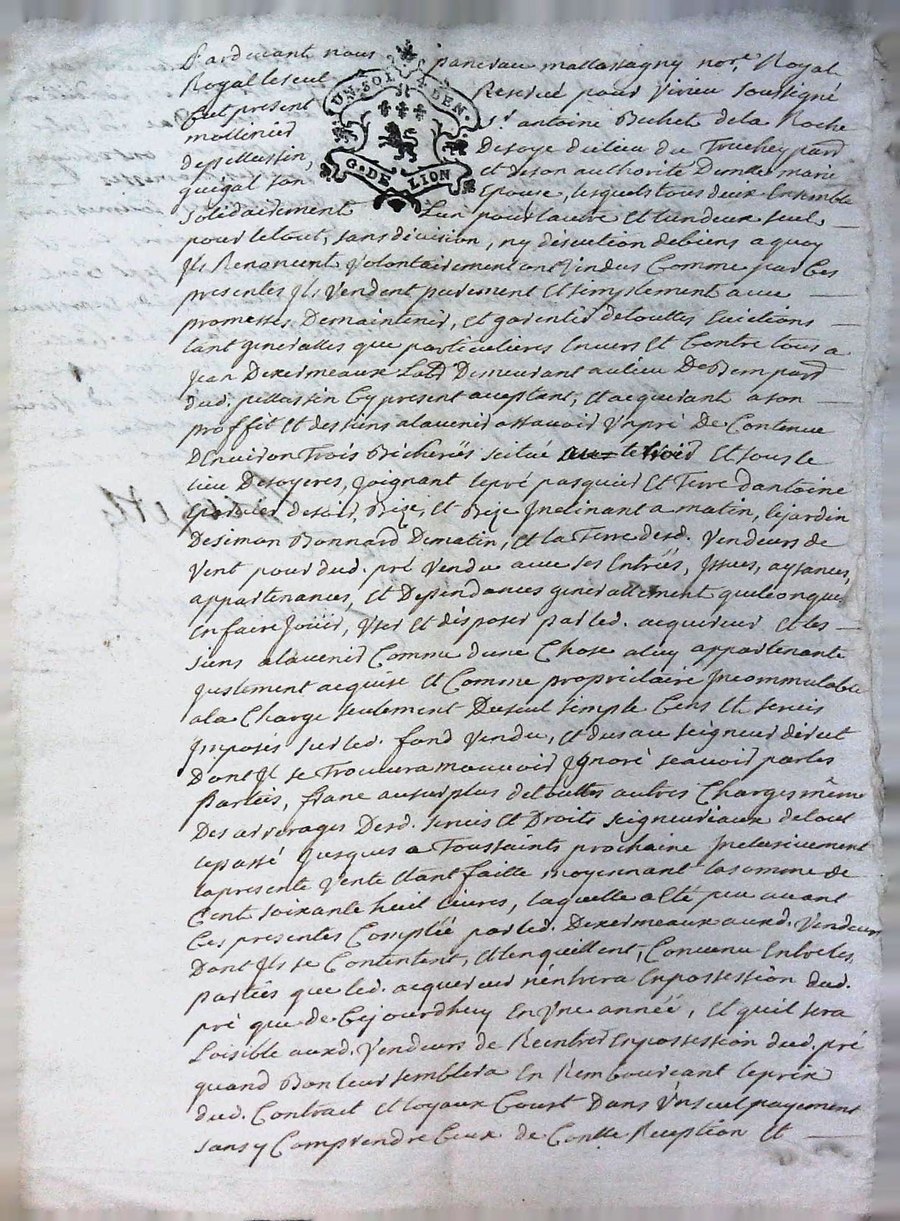 Pardevant nous pancrau mattassagny not.e Royal
Royal leseul Reservé pour Virieu soussigné
fut present s.r antoine Buhet dela Roche
mollinier Desoye dulieu du Truchey par.d
depellussin, et deson authorité
quegal son Epouse, lesquels tous deux Ensemble
solidairement Lun pour lautre et lundeux seul
UN. SOL 4 DEN.
G. DE LION
pour letout, sans division, ny discution debiens a quoy
Ils Renoncent Volontairement ont Vendus Comme par Ces
presentes Ils Vendent purement et simplement avec
promesses Demaintenir, et garentir detouttes Evictions
tant generalles que particulieres Envers et Contre tous a
Jean Dexermeaux Lab.r Demeurant aulieu par.d
dud. pellussin Cy present aceptant, et acquerant a son
proffit et des siens alavenir assavoir Unpré De Contenue
DEnviron Trois Bicherées scitué et sous le
lieu Desoyeres, Joignant lepré pasquier et Terre dantoine
desoir, Bize, et Bize Inclinant a matin, lejardin
Desimon Bonnard Dematin, et la Terre desd. Vendeurs de
Vent pour dud. pré Vendu avec ses Entrées, Issues, aysances,
appartenances, et Dependances generallement quelconques
En faire Jouir, User et disposer par led. acquereur et les
siens alavenir Comme dune Chose aluy appartenante
Justement acquise et Comme proprietaire Incommutable
ala Charge seulement Duseul simple Cens et servis
Imposés sur led. fond Vendu, et dus au seigneur direct
Dont Il se Trouvera mouvoir Ignoré scavoir par les
Parties, franc ausurplus detouttes autres Charges même
Des arrerages Desd. servis et Droits seigneuriaux detout
lepassé Jusques a Toussaints prochaine Inclusivement
lapresente Vente Etant faitte moyennant lasomme de
Cent soixante huit livres, laquelle a eté peu avant
Ces presentes Comptée par led. Dexermeaux auxd. Vendeurs
Dont Ils se Contentent, et lenquittent, Convenu Entre les
parties que led. acquereur nentrera Enpossession dud.
pré que de Cejourdhuy En Une année, et quil sera
Loisible auxd. Vendeurs de Rentrer Enpossession dud. pré
quand Bon leur semblera En Remboursant leprix
dud. Contract et loyaux Court Dans Unseul payement
sans y Comprendre Ceux de Contte Reception et